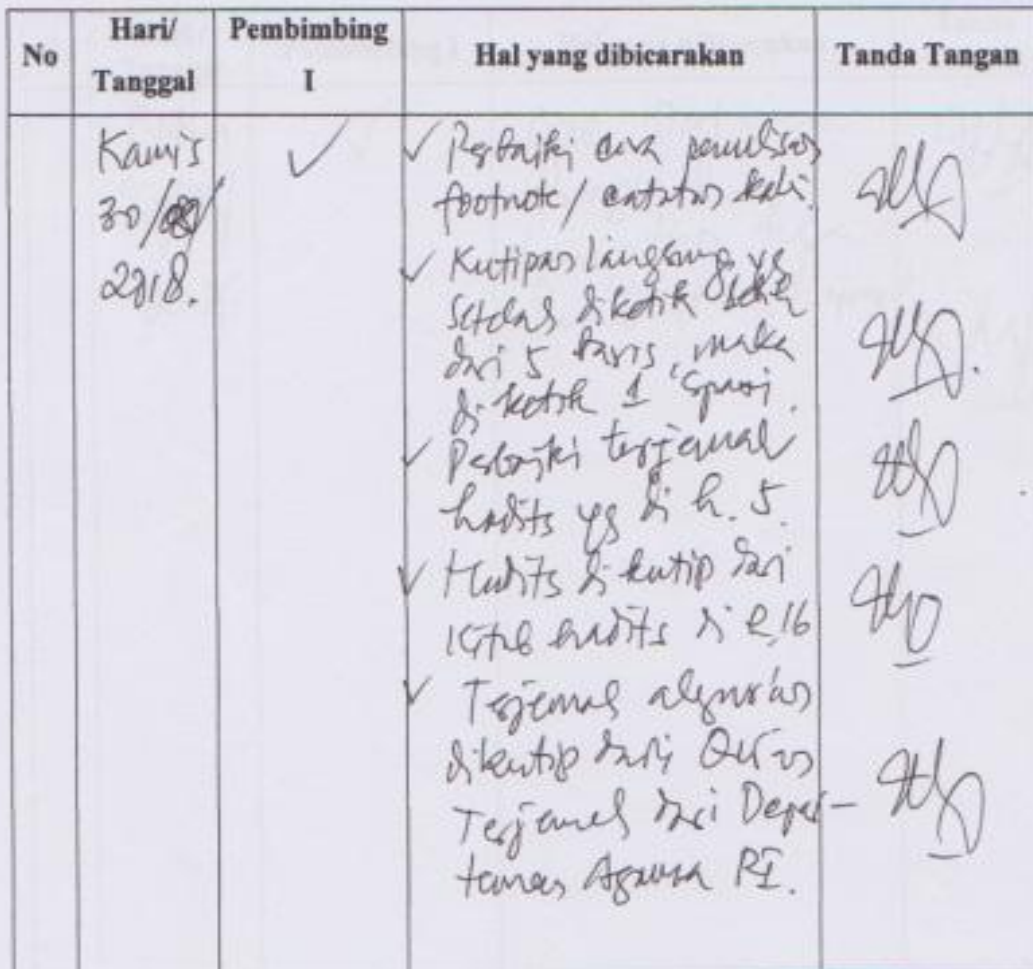 No
Hari/
Tanggal
Pembimbing
I
Hal yang dibicarakan
Tanda Tangan
Kamis
30/08/
2018.
✓
✓ Perbaiki cara penulisan
footnote/ catatan kaki.
✓ Kutipan langsung yg
setelah diketik lebih
dari 5 baris, maka
di ketik 1 spasi.
✓ Perbaiki terjemah
hadits yg di h. 5.
✓ Hadits di kutip dari
Kitab hadits di h.16
✓ Terjemah alqur'an
dikutip dari Qur'an
Terjemah dari Depar-
temen Agama RI.